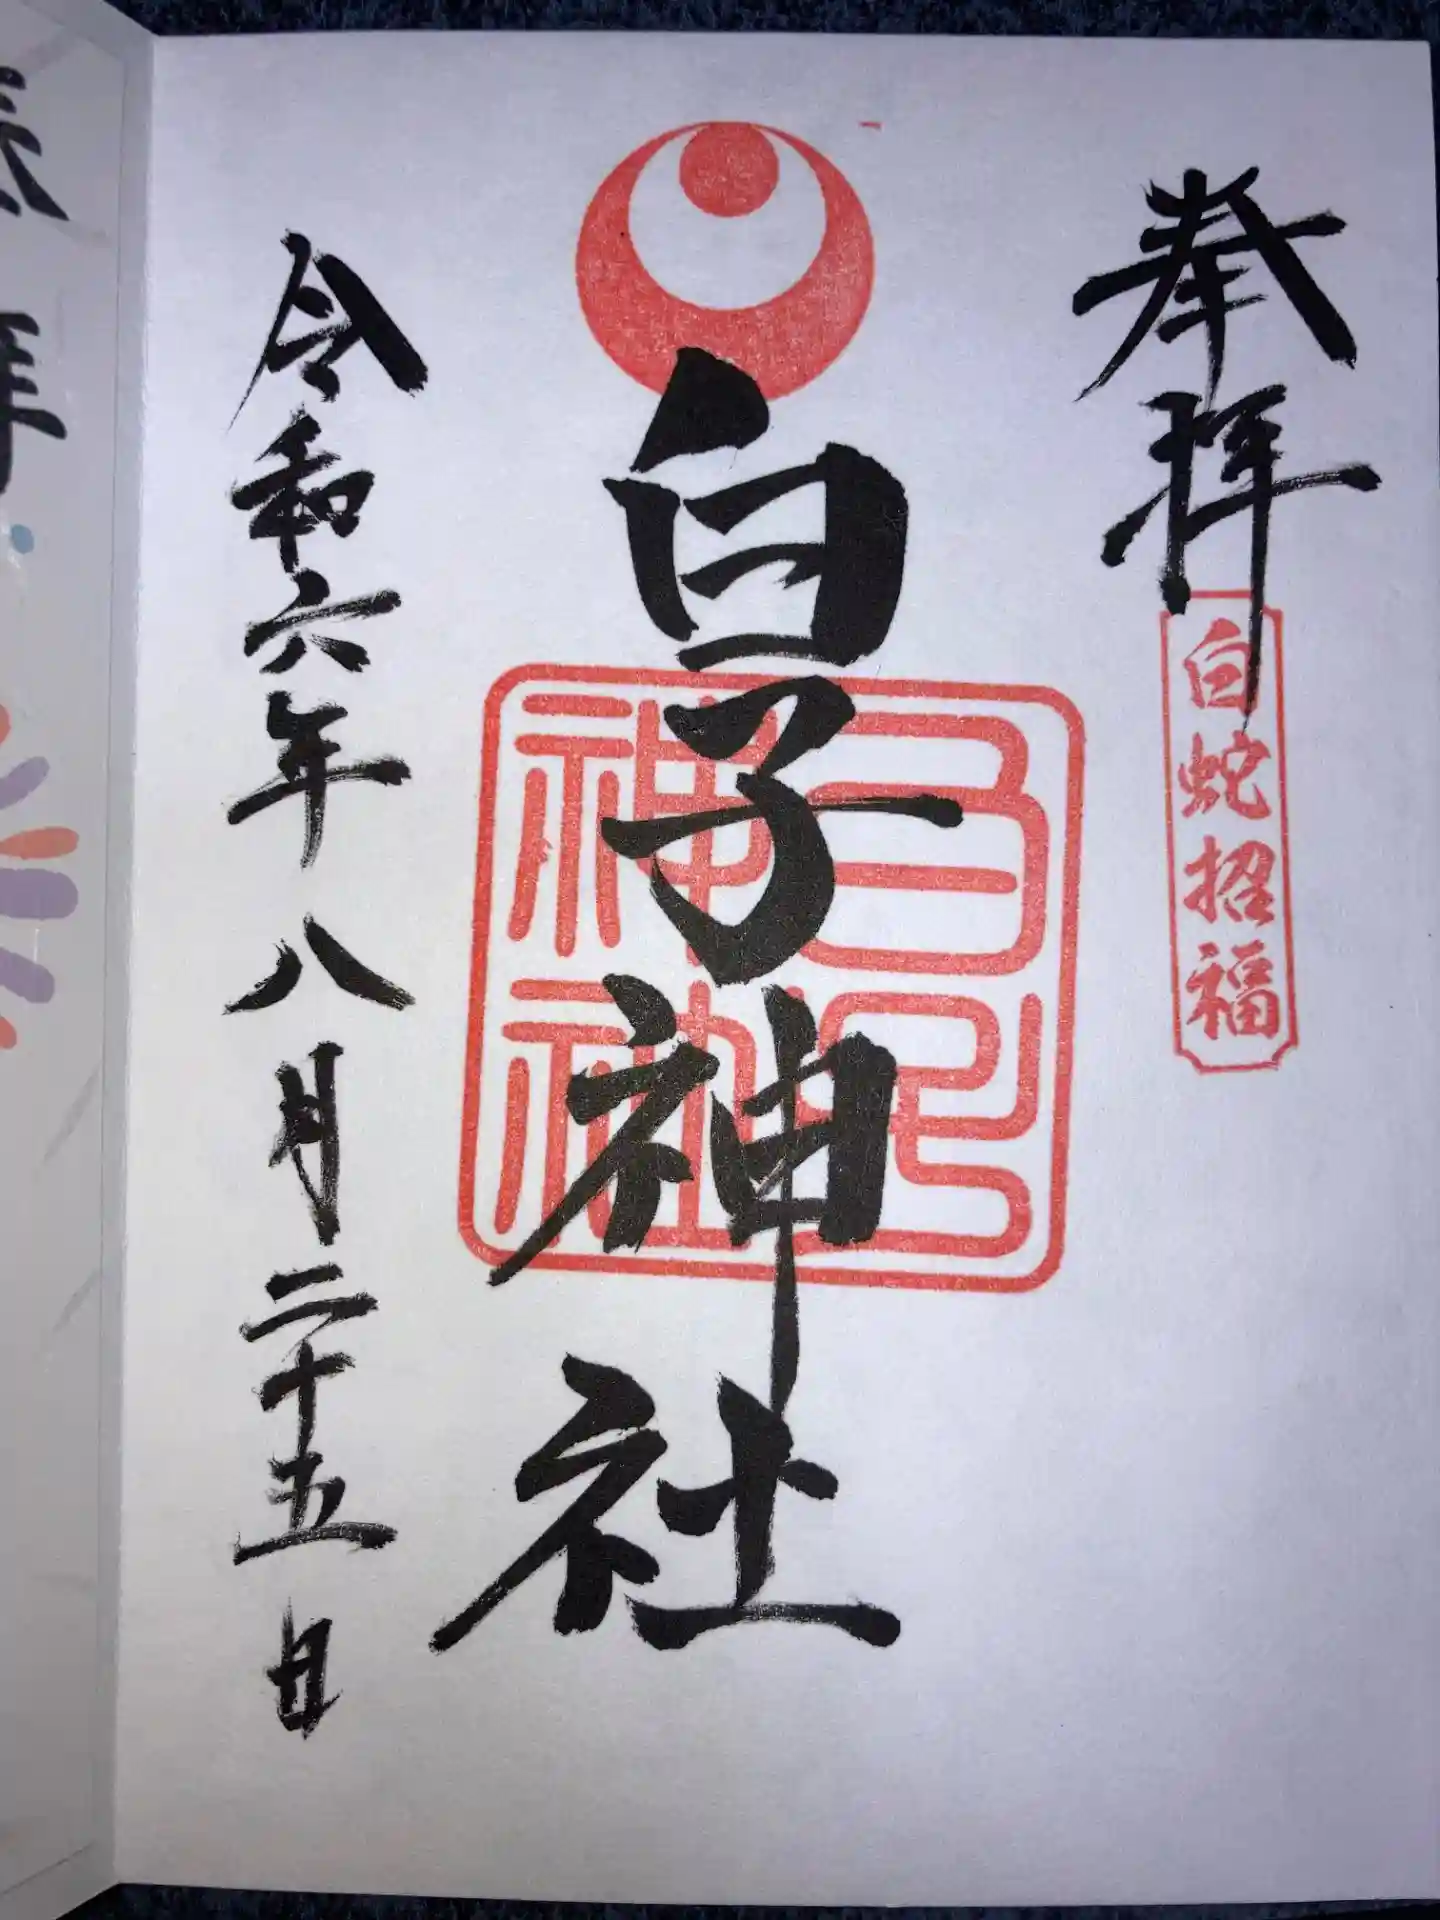 奉拝
白蛇招福
白子神社
白子神社
令和六年八月二十五日
拝